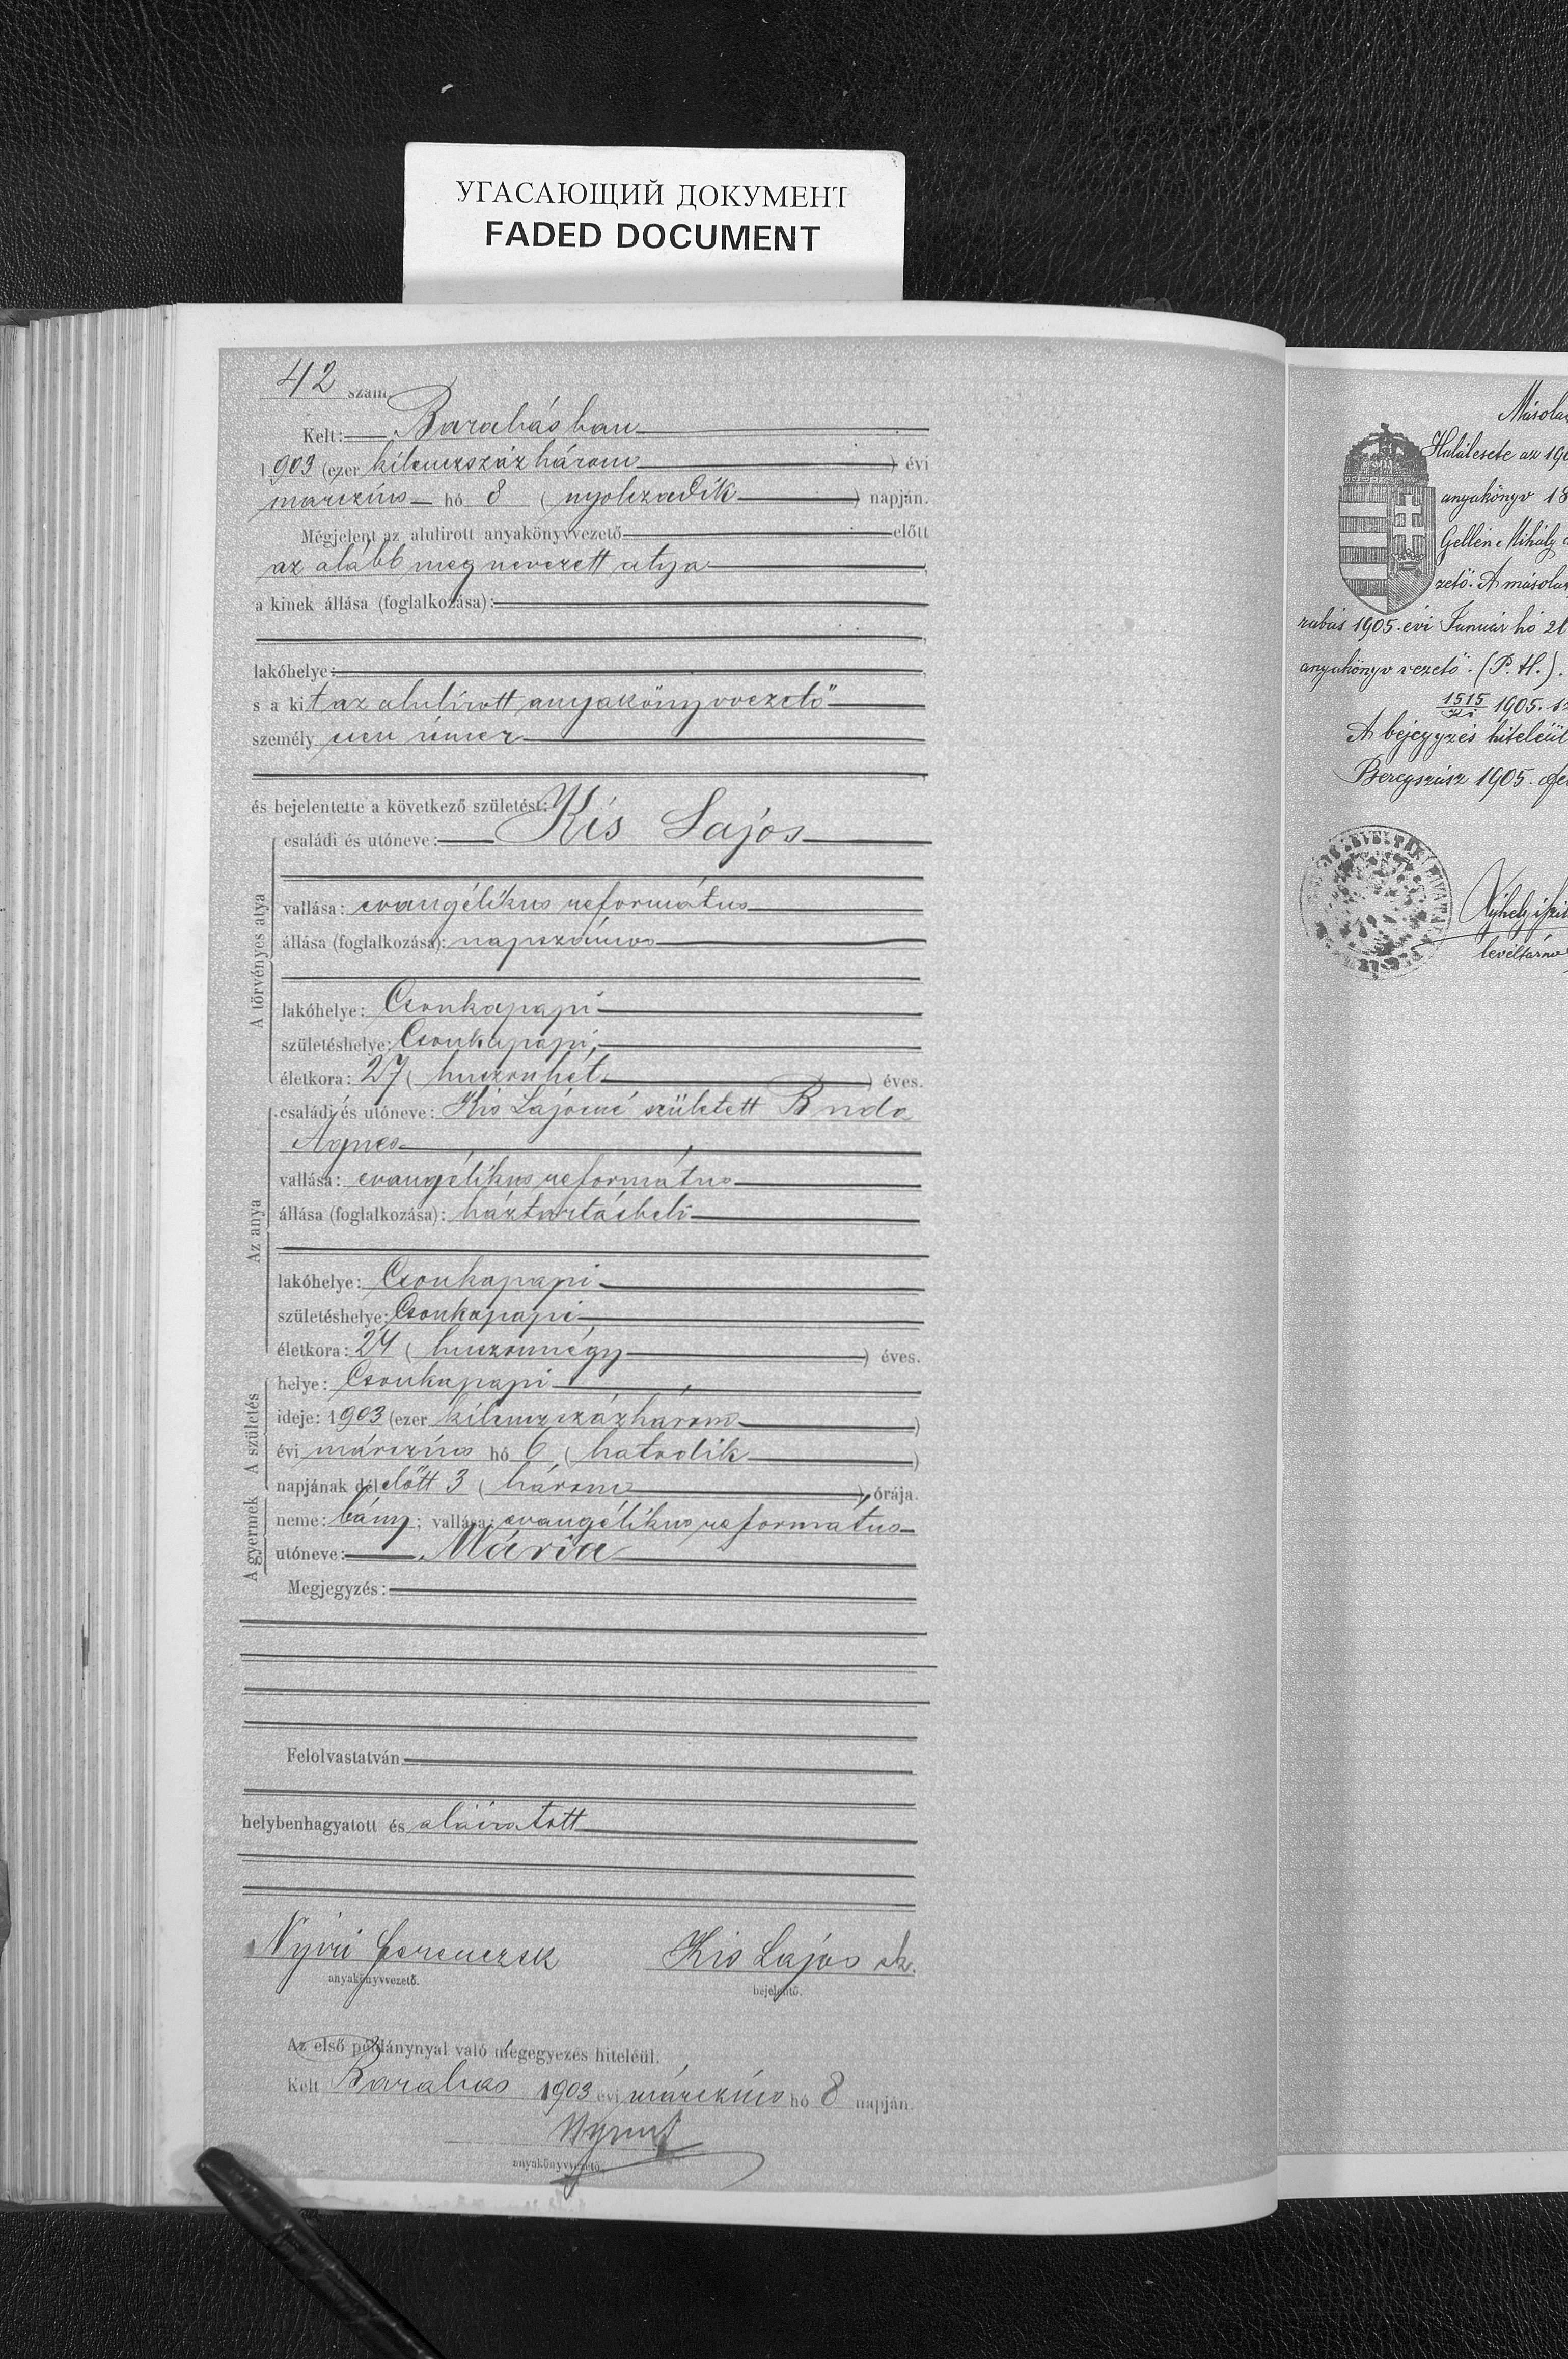 УГАСАЮЩИЙ ДОКУМЕНТ
FADED DOCUMENT
42 szám.
Kelt: Barabásban
1903 (ezer kilenczszázhárom) évi
marczius hó 8 (nyolczadik) napján.
Mégjelent az alulirott anyakönyvvezető előtt
az alább megnevezett atya,
a kinek állása (foglalkozása):
lakóhelye:
s a kit az alulírott anyakönyvvezető
személy
és bejelentette a következő születést:
A törvényes atya
családi és utóneve: Kis Lajos
vallása: evangélikus református
állása (foglalkozása): napszámos
lakóhelye: Csonkapapi
születéshelye: Csonkapapi,
életkora: 27 (huszonhét) éves.
Az anya
családi és utóneve: Kis Lajosné született
Ágnes,
vallása: evangélikus református
állása (foglalkozása): háztartásbeli
lakóhelye: Csonkapapi
születéshelye: Csonkapapi
életkora: 24 (huszonnégy) éves.
A születés
helye: Csonkapapi,
ideje: 1903 (ezer kilenczszázhárom)
évi márczius hó 6 (hatodik)
napjának délelőtt 3 (három) órája.
A gyermek
neme: leány; vallása: evangélikus református
utóneve: Mária
Megjegyzés:
Felolvastatván
helybenhagyatott és aláiratott
Nyiri Ferencz sk Kis Lajos sk.
anyakönyvvezető. bejelentő.
Az első példánynyal való megegyezés hiteléül.
Kelt Barabas 1903 évi márczius hó 8 napján
anyakönyvvezető.
Halálesete az
anyakönyv
Gellén Mihály
zető. A
rabás 1905. évi Január hó 21
anyakönyv vezető. (P. H.).
1515
1905.
A bejegyzés hiteléül
Beregszász 1905.